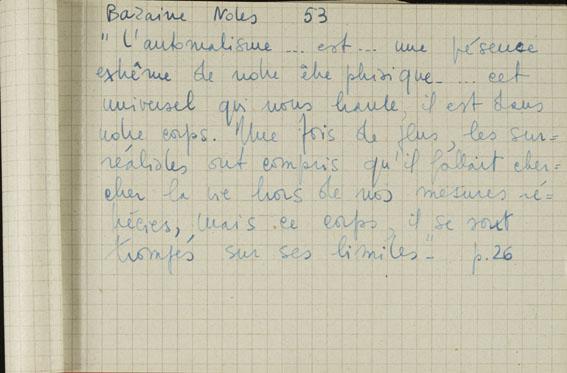 Bazaine Notes 53
"L'automatisme ... est ... une présence
extrême de notre être phisique. ... cet
universel qui nous hante, il est dans
notre corps. Une fois de plus, les sur=
réalistes ont compris qu'il fallait cher=
cher la vie hors de nos mesures ré=
trécies, mais ce corps, il se sont
trompés sur ses limites" p.26